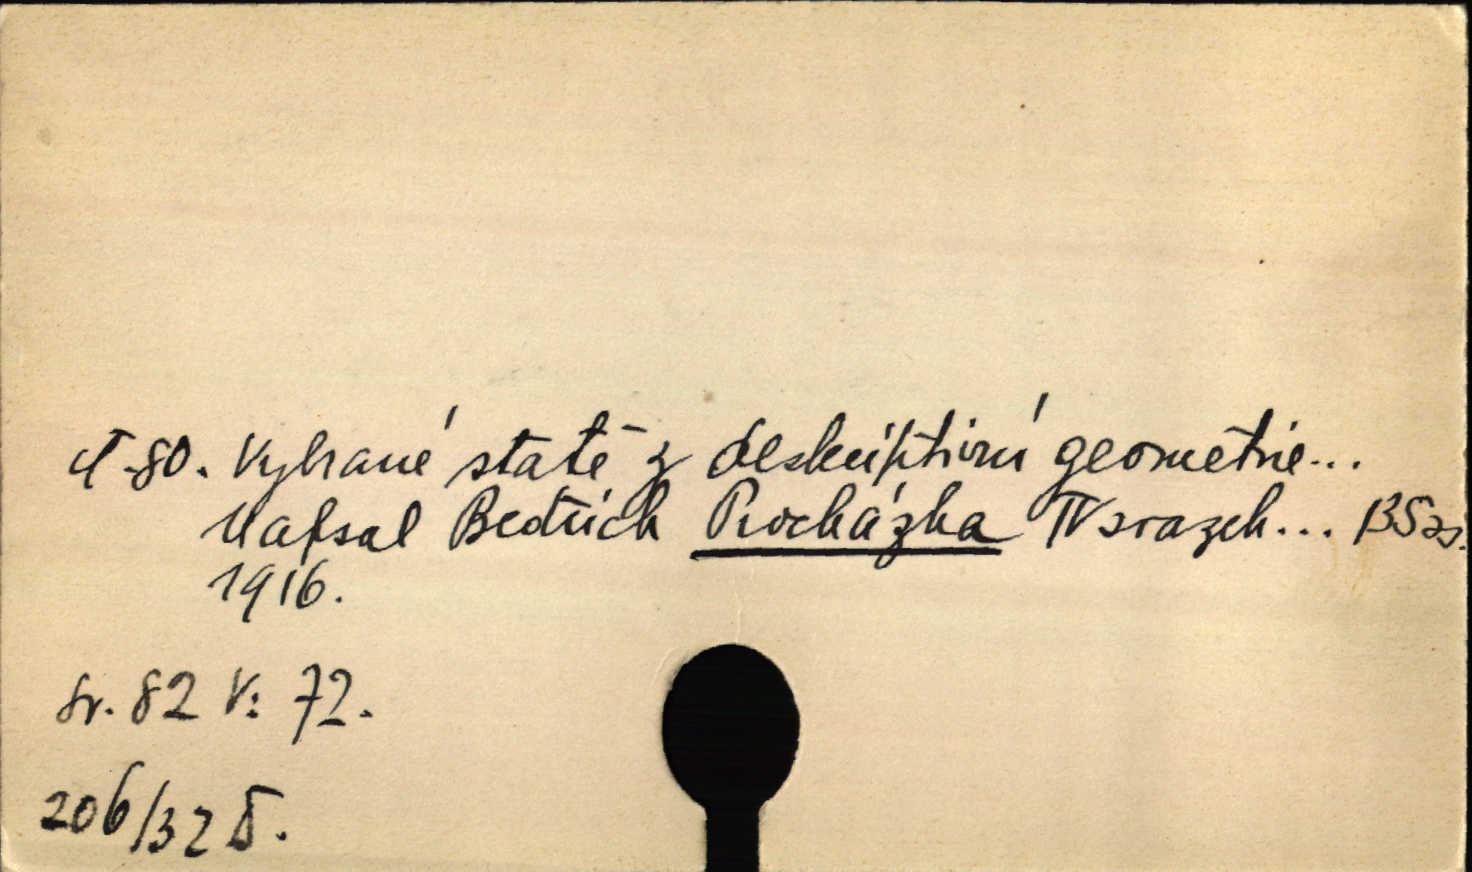 80. Vybrané statě z deskriptivní geometrie...
Napsal Bedřich Procházka IV svazek...
1916.
sv. 82 V: 72.
206/32 D.